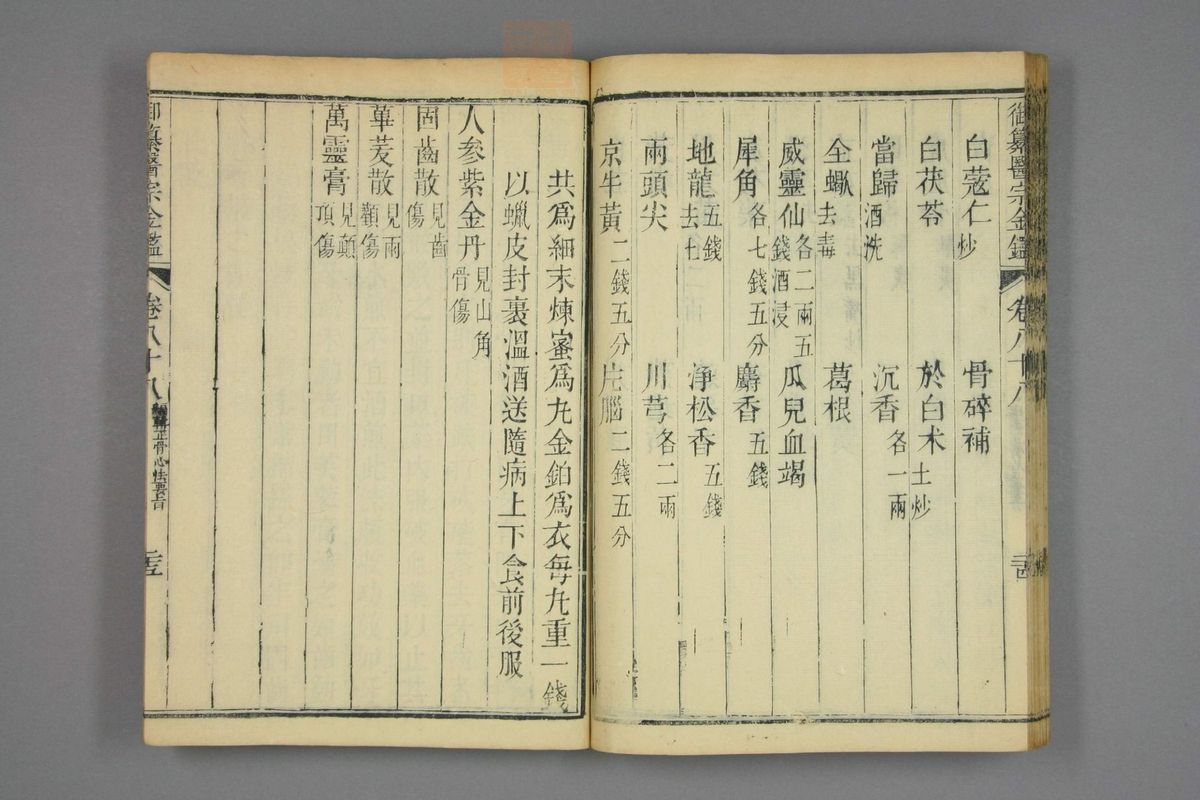 御纂醫宗金鑑 卷八十八
白蔻仁炒 骨碎補
白茯苓 於白朮土炒
當歸酒洗 沉香各一兩
全蠍去毒 葛根
威靈仙各二兩五錢酒浸 瓜兒血竭
犀角各七錢五分 麝香五錢
地龍去土五錢 淨松香五錢
兩頭尖 川芎各二兩
京牛黃二錢五分 片腦二錢五分
共爲細末煉蜜爲丸金鉑爲衣每丸重一錢
以蠟皮封裹溫酒送隨病上下食前後服
人參紫金丹見山角骨傷
固齒散見齒傷
蓽茇散見兩顴傷
萬靈膏見顛頂傷
御纂醫宗金鑑 卷八十八 編輯正骨心法要旨 二五